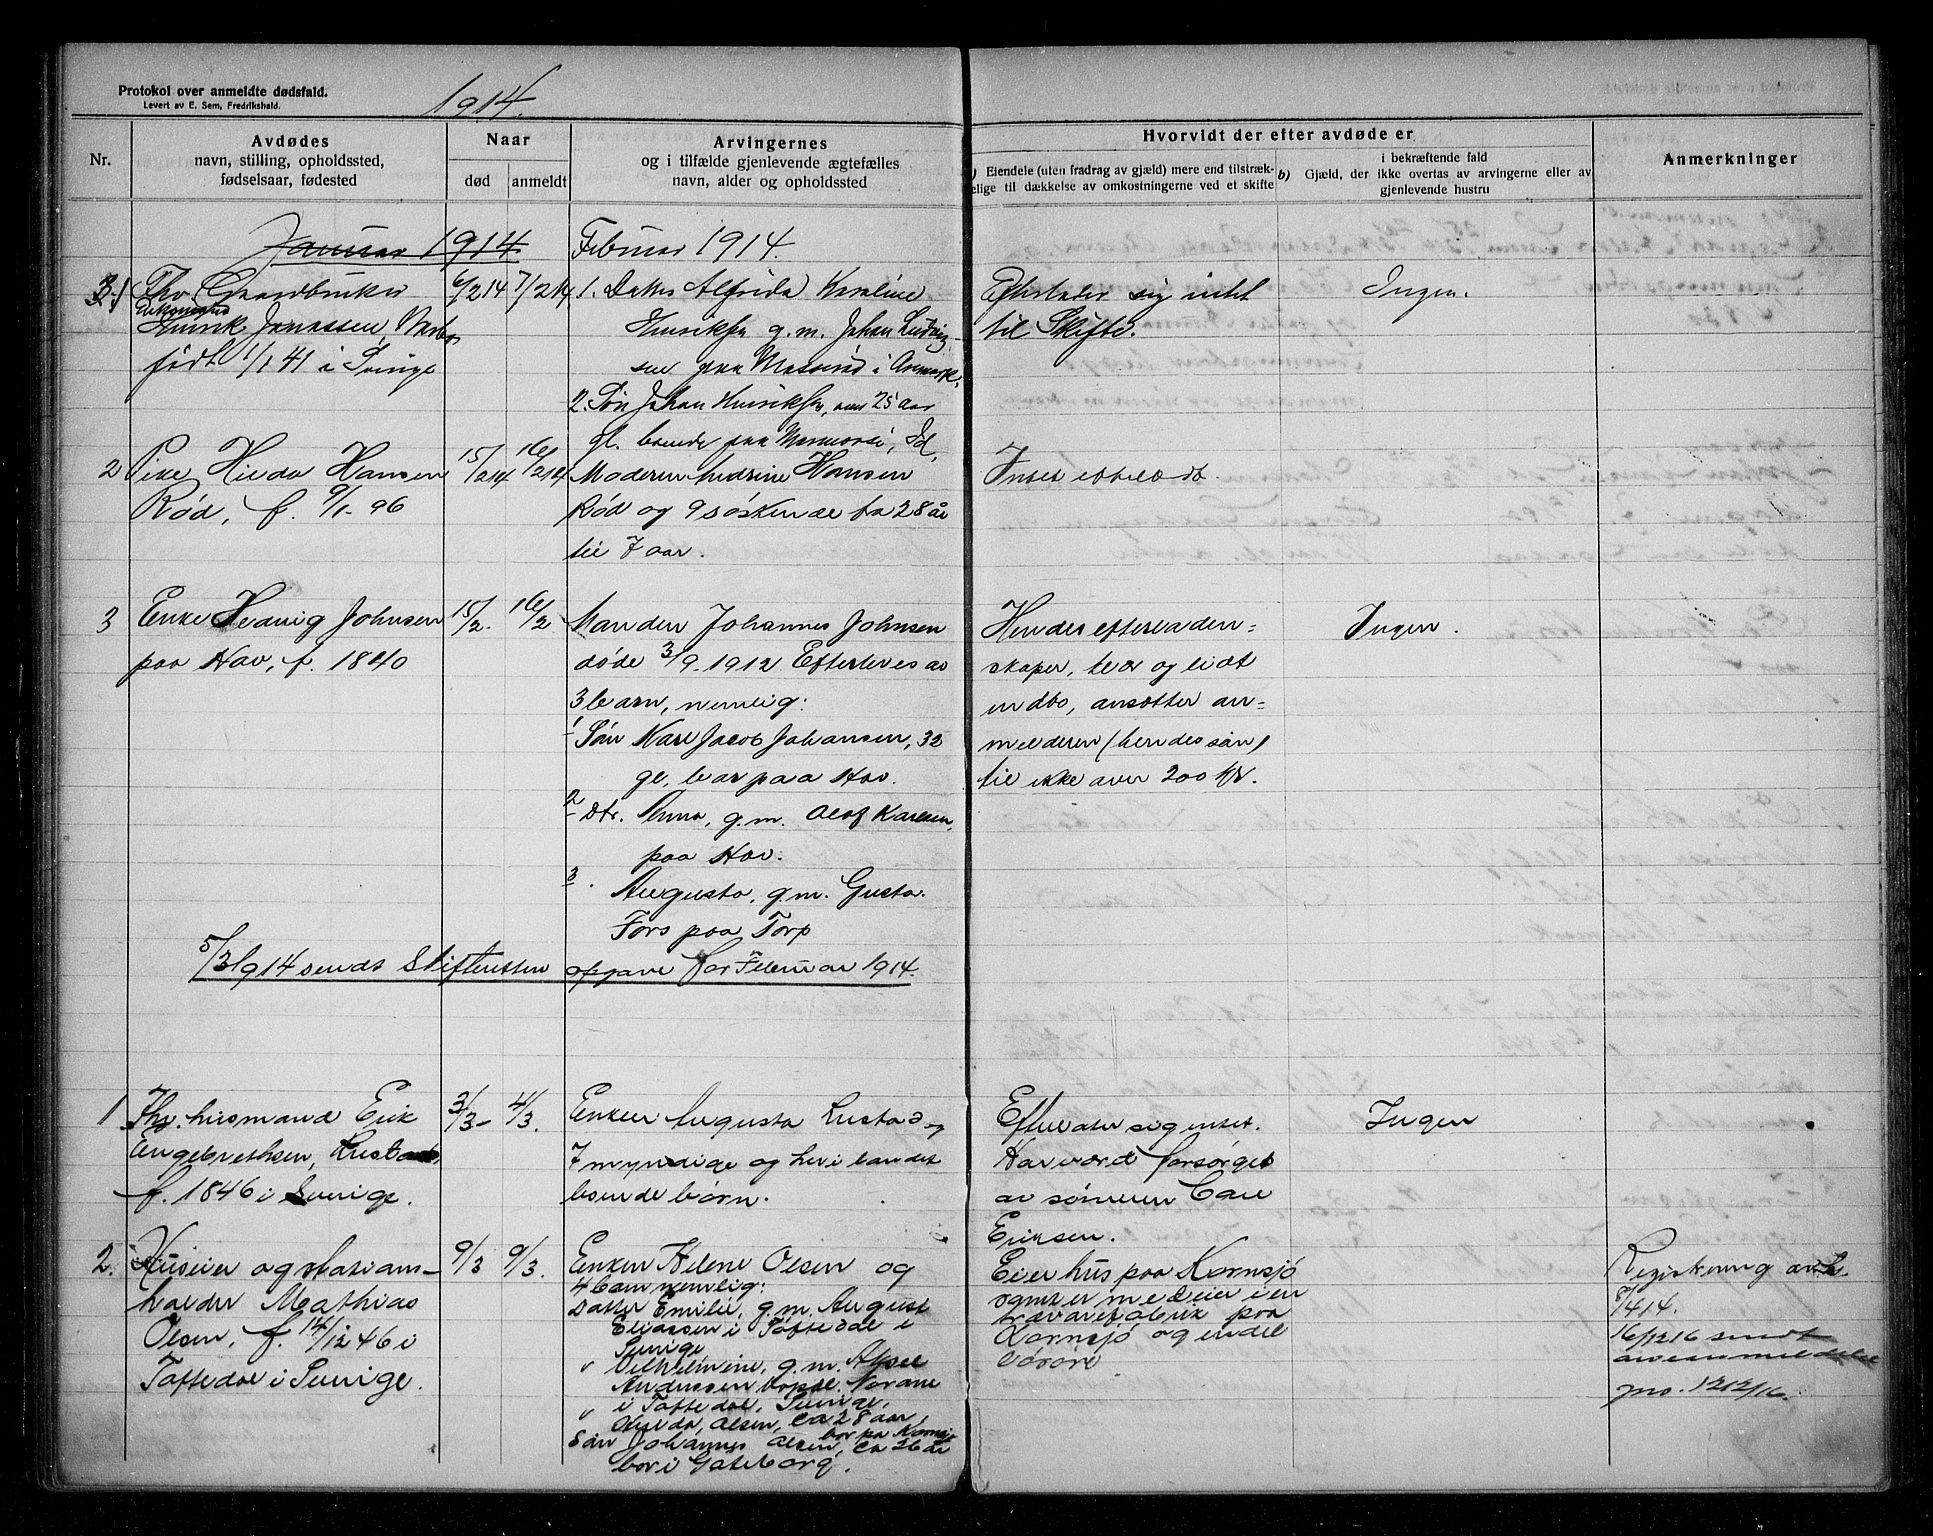 Protokol over anmeldte dødsfald.
Levert av E. Sem, Fredrikshald.
1914.
Nr.
Avdødes
navn, stilling, opholdssted,
fødselsaar, fødested
Naar
død
anmeldt
Arvingernes
og i tilfælde gjenlevende ægtefælles
navn, alder og opholdssted
Hvorvidt der efter avdøde er
Eiendele (uten fradrag av gjæld) mere end tilstræk-
elige til dækkelse av omkostningerne ved et skifte
i bekræftende fald
b) Gjæld, der ikke overtas av arvingerne eller av
gjenlevende hustru
Anmerkninger
Januar 1914
Februar 1914.
Fhv. Gaardbruker
Enkemand
Henrik Janassen,
født 1/1 41 i Sverige
6/2 14
7/2 14
1. Datter Alfrida Karoline
Henriksen g.m. Johan Ludvig-
sen paa i Aremark.
2. Søn Johan Henriksen, over 25 aar
gl. boende paa Id.
Efterlader sig intet
til Skifte.
Ingen.
2
Pike Hilda Hansen
Rød, f. 9/1 - 96
15/2 14
16/2 14
Moderen Andrine Hansen
Rød og 9 søskende fra 28 år
til 7 aar.
Intet efterladt.
3
Enke Hedvig Johnsen
paa Hov, f. 1840
15/2.
16/2
Manden Johannes Johnsen
døde 3/9 - 1912 Efterleves av
3 barn, nemlig:
1 Søn Karl Jacob Johansen, 32
gl, bor paa Hov.
2 Dtr. Anna, g.m. Olaf Karlsen,
paa Hov.
3.
Augusta, g.m. Gusta.
Fors paa Torp
Hendes efterladen=
skaper, klær og lidt
indbo, ansætter an=
melderen (hendes søn)
til ikke over 200 kr.
Ingen.
5/3 1914 sendt Skifteretten opgave for Februar 1914.
1
Fhv. husmand Erik
Engebrethsen, Lustad,
f. 1846 i Sverige.
3/3 -
4/3.
Enken Augusta Lustad og
7 myndige og her i landet
boende børn.
Efterlater sig intet.
Har været forsørget
av sønnen Carl
Eriksen.
Ingen
2.
Huseier og stations-
holder Mathias
Olsen, f. 14/12 46 i
Töftedal i Sverige.
9/3
9/3.
Enken Helene Olsen og
4 barn nemlig:
Datter Emilie, g.m. August
Eliassen i Töftedal i
Sverige
" Vilhelmine, g.m. Aksel
Anderssen Norane
i Töftedal, Sverige.
" Hulda Olsen, ca 28 aar,
bor pa Kornsjø
Søn Johannes Olsen, ca 26 år
bor i Gøteborg.
Eier hus paa Kornsjø
samt er medeier i en
trævarefabrik paa
Kornsjø og endel
løsøre
Registrering avh.
7/4 14.
16/12 16 sendt
arveanmeldelse
pro. 1212/16.